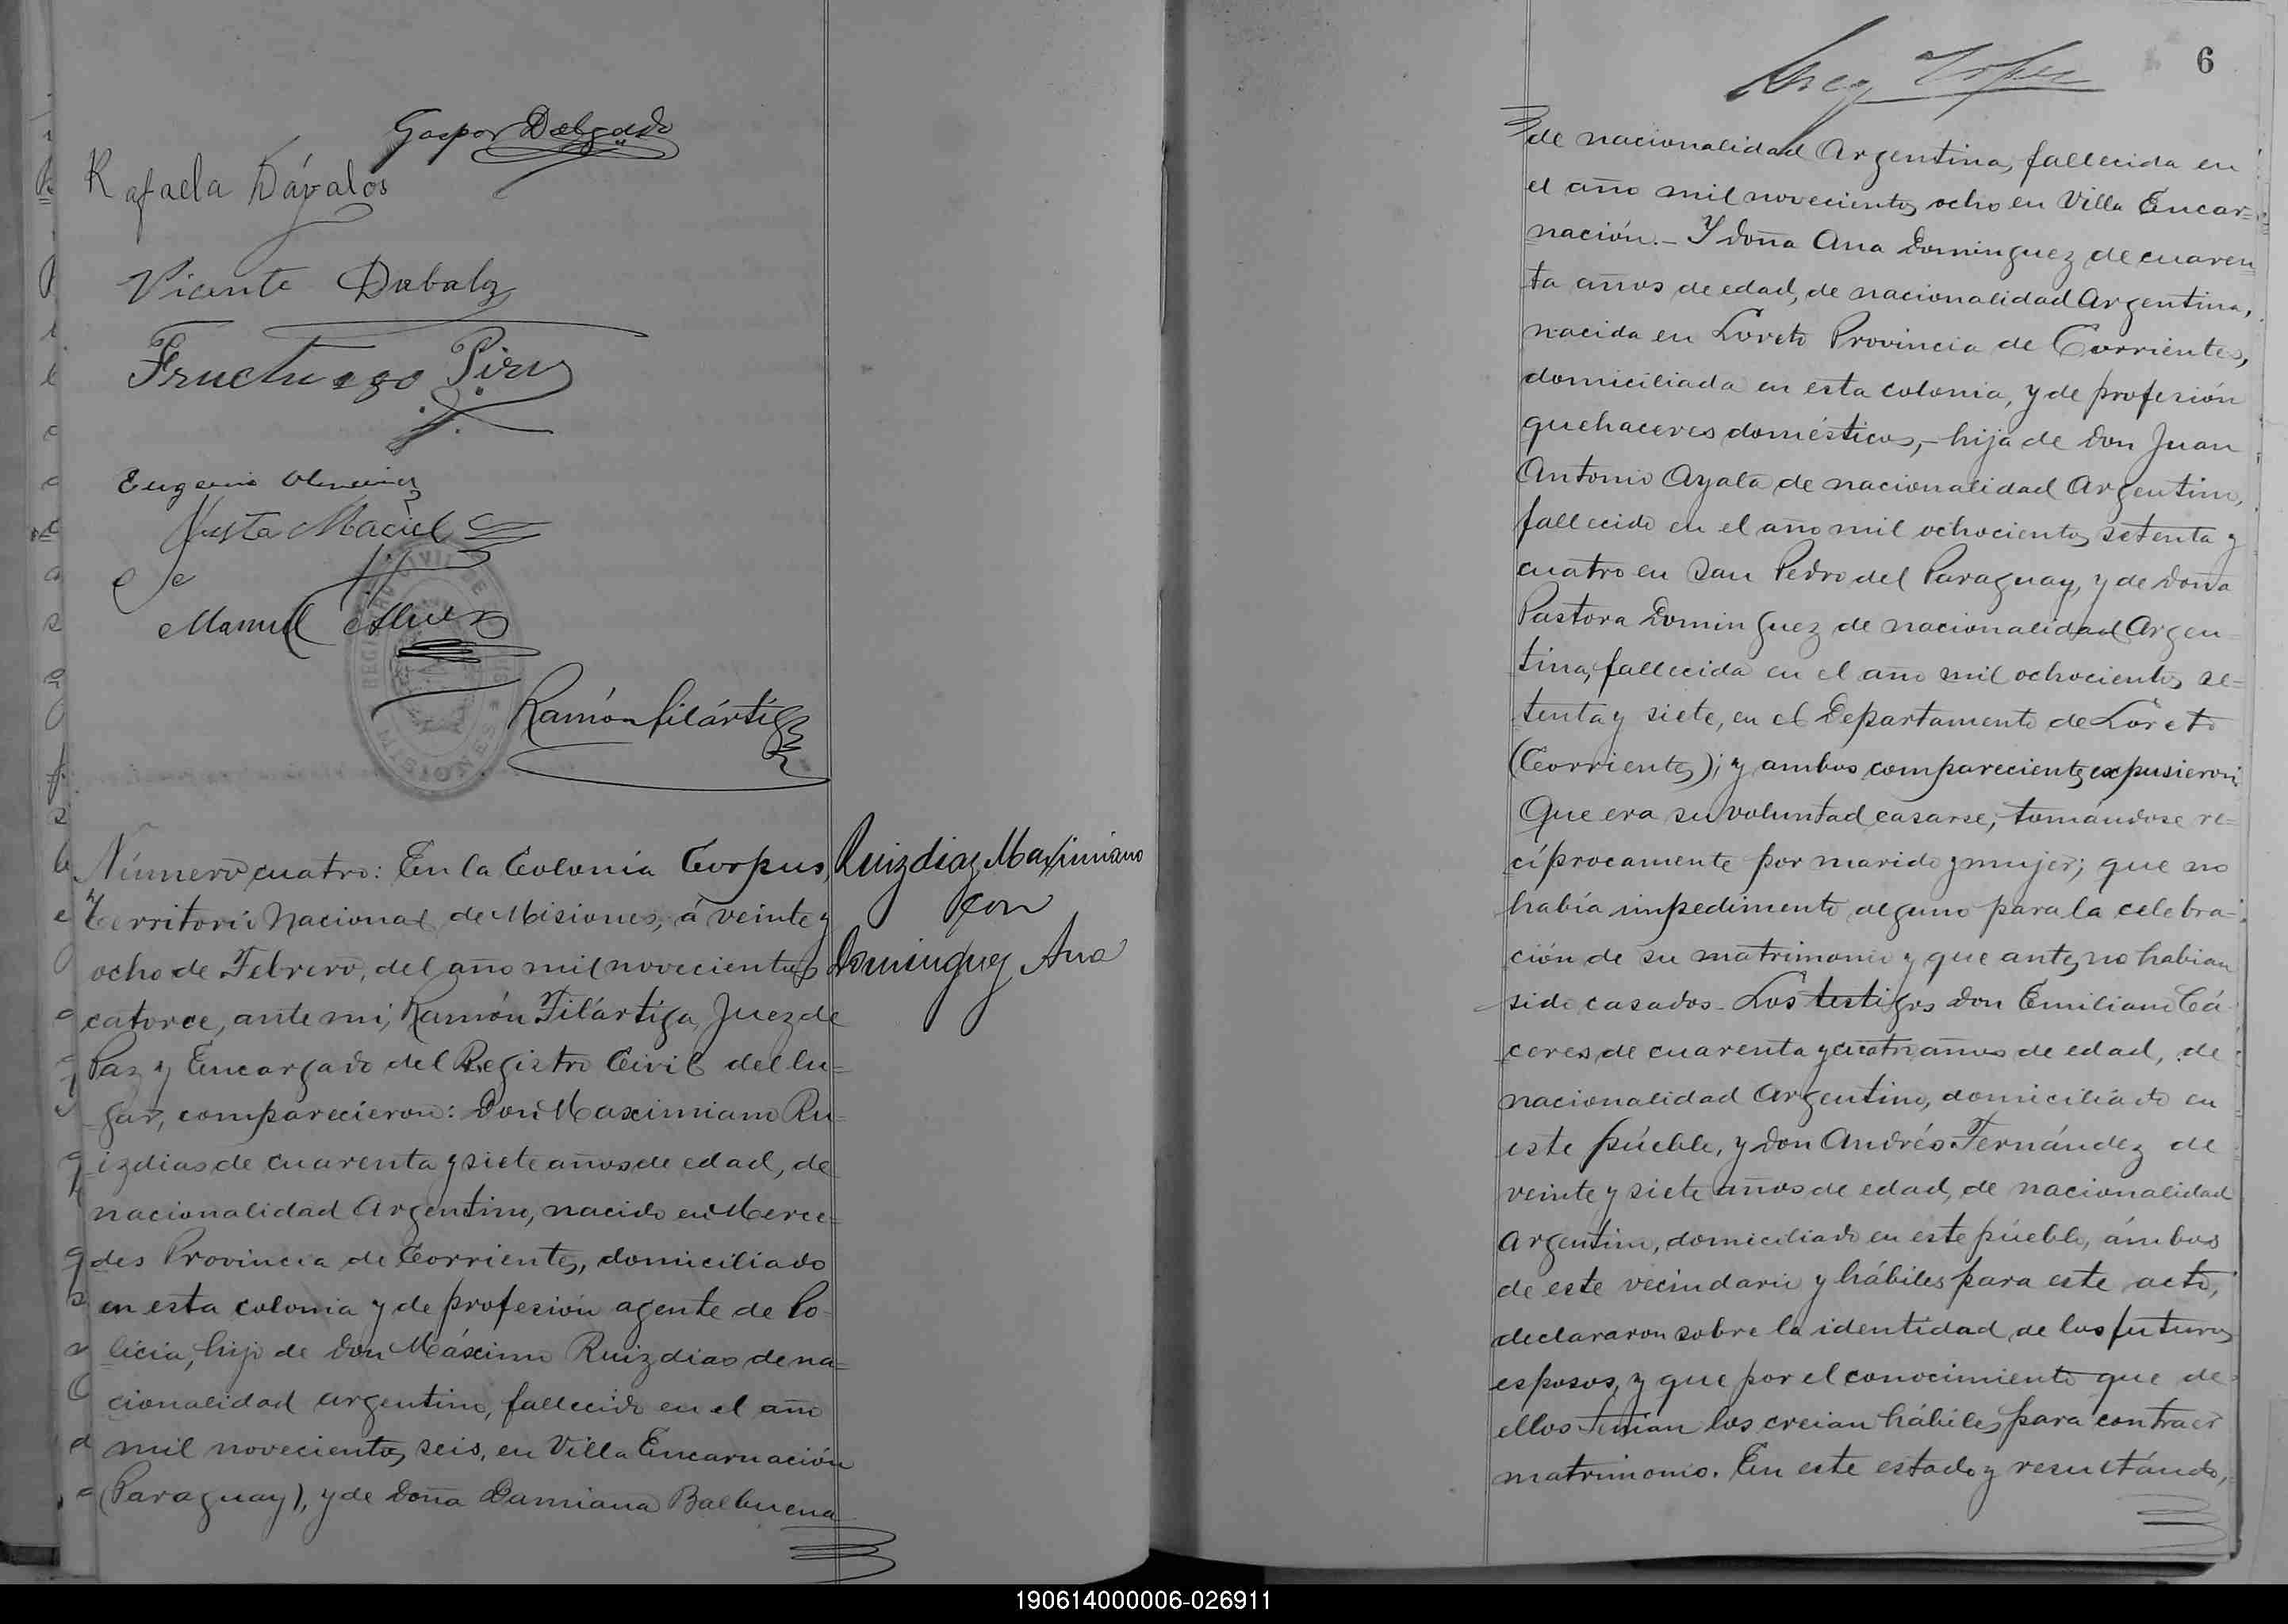 Gaspar Delgado
Rafaela Dávalos
Vicente Dabalos
Fructuoso
Eugenio
Justa Maciel
Manuel
Ramón Filártiga
REGISTRO CIVIL DE
MISIONES
Número cuatro: En la Colonia Corpus,
Territorio Nacional de Misiones, á veinte y
ocho de Febrero, del año mil novecientos
catorce, ante mi, Ramón Filártiga, Juez de
Paz y Encargado del Registro Civil del lu=
gar, comparecieron: Don Maximiano Ru=
izdias de cuarenta y siete años de edad, de
nacionalidad Argentino, nacido en Merce=
des Provincia de Corrientes, domiciliado
en esta colonia y de profesión agente de Po-
licia, hijo de Don Máximo Ruizdias de na=
cionalidad argentino, fallecido en el año
mil novecientos seis, en Villa Encarnación
(Paraguay), y de Doña Damiana Balbuena
Ruizdiaz Maximiano
con
Dominguez Ana
6
de nacionalidad Argentina, fallecida en
el año mil novecientos ocho en Villa Encar=
nación.- Y doña Ana Dominguez de cuaren=
ta años de edad, de nacionalidad Argentina,
nacida en Loreto Provincia de Corrientes,
domiciliada en esta colonia, y de profesión
quehaceres domésticos,- hija de Don Juan
Antonio Ayala de nacionalidad Argentino,
fallecido en el año mil ochocientos setenta y
cuatro en San Pedro del Paraguay, y de doña
Pastora Dominguez de nacionalidad Argen=
tina, fallecida en el año mil ochocientos se=
tenta y siete, en el Departamento de Loreto
(Corrientes); y ambos comparecientes expusieron:
Que era su voluntad casarse, tomándose re=
cíprocamente por marido y mujer; que no
había impedimento alguno para la celebra-
ción de su matrimonio y que antes no habian
sido casados. Los testigos Don Emiliano Cá-
ceres, de cuarenta y cuatro años de edad, de
nacionalidad Argentino, domiciliado en
este púeblo, y Don Andrés Fernández de
veinte y siete años de edad, de nacionalidad
Argentino, domiciliado en este púeblo, ámbos
de este vecindario y hábiles para este acto,
declararon sobre la identidad de los futuros
esposos, y que por el conocimiento que de
ellos tenian los creian hábiles para contraer
matrimonio. En este estado y resultándo,
190614000006-026911